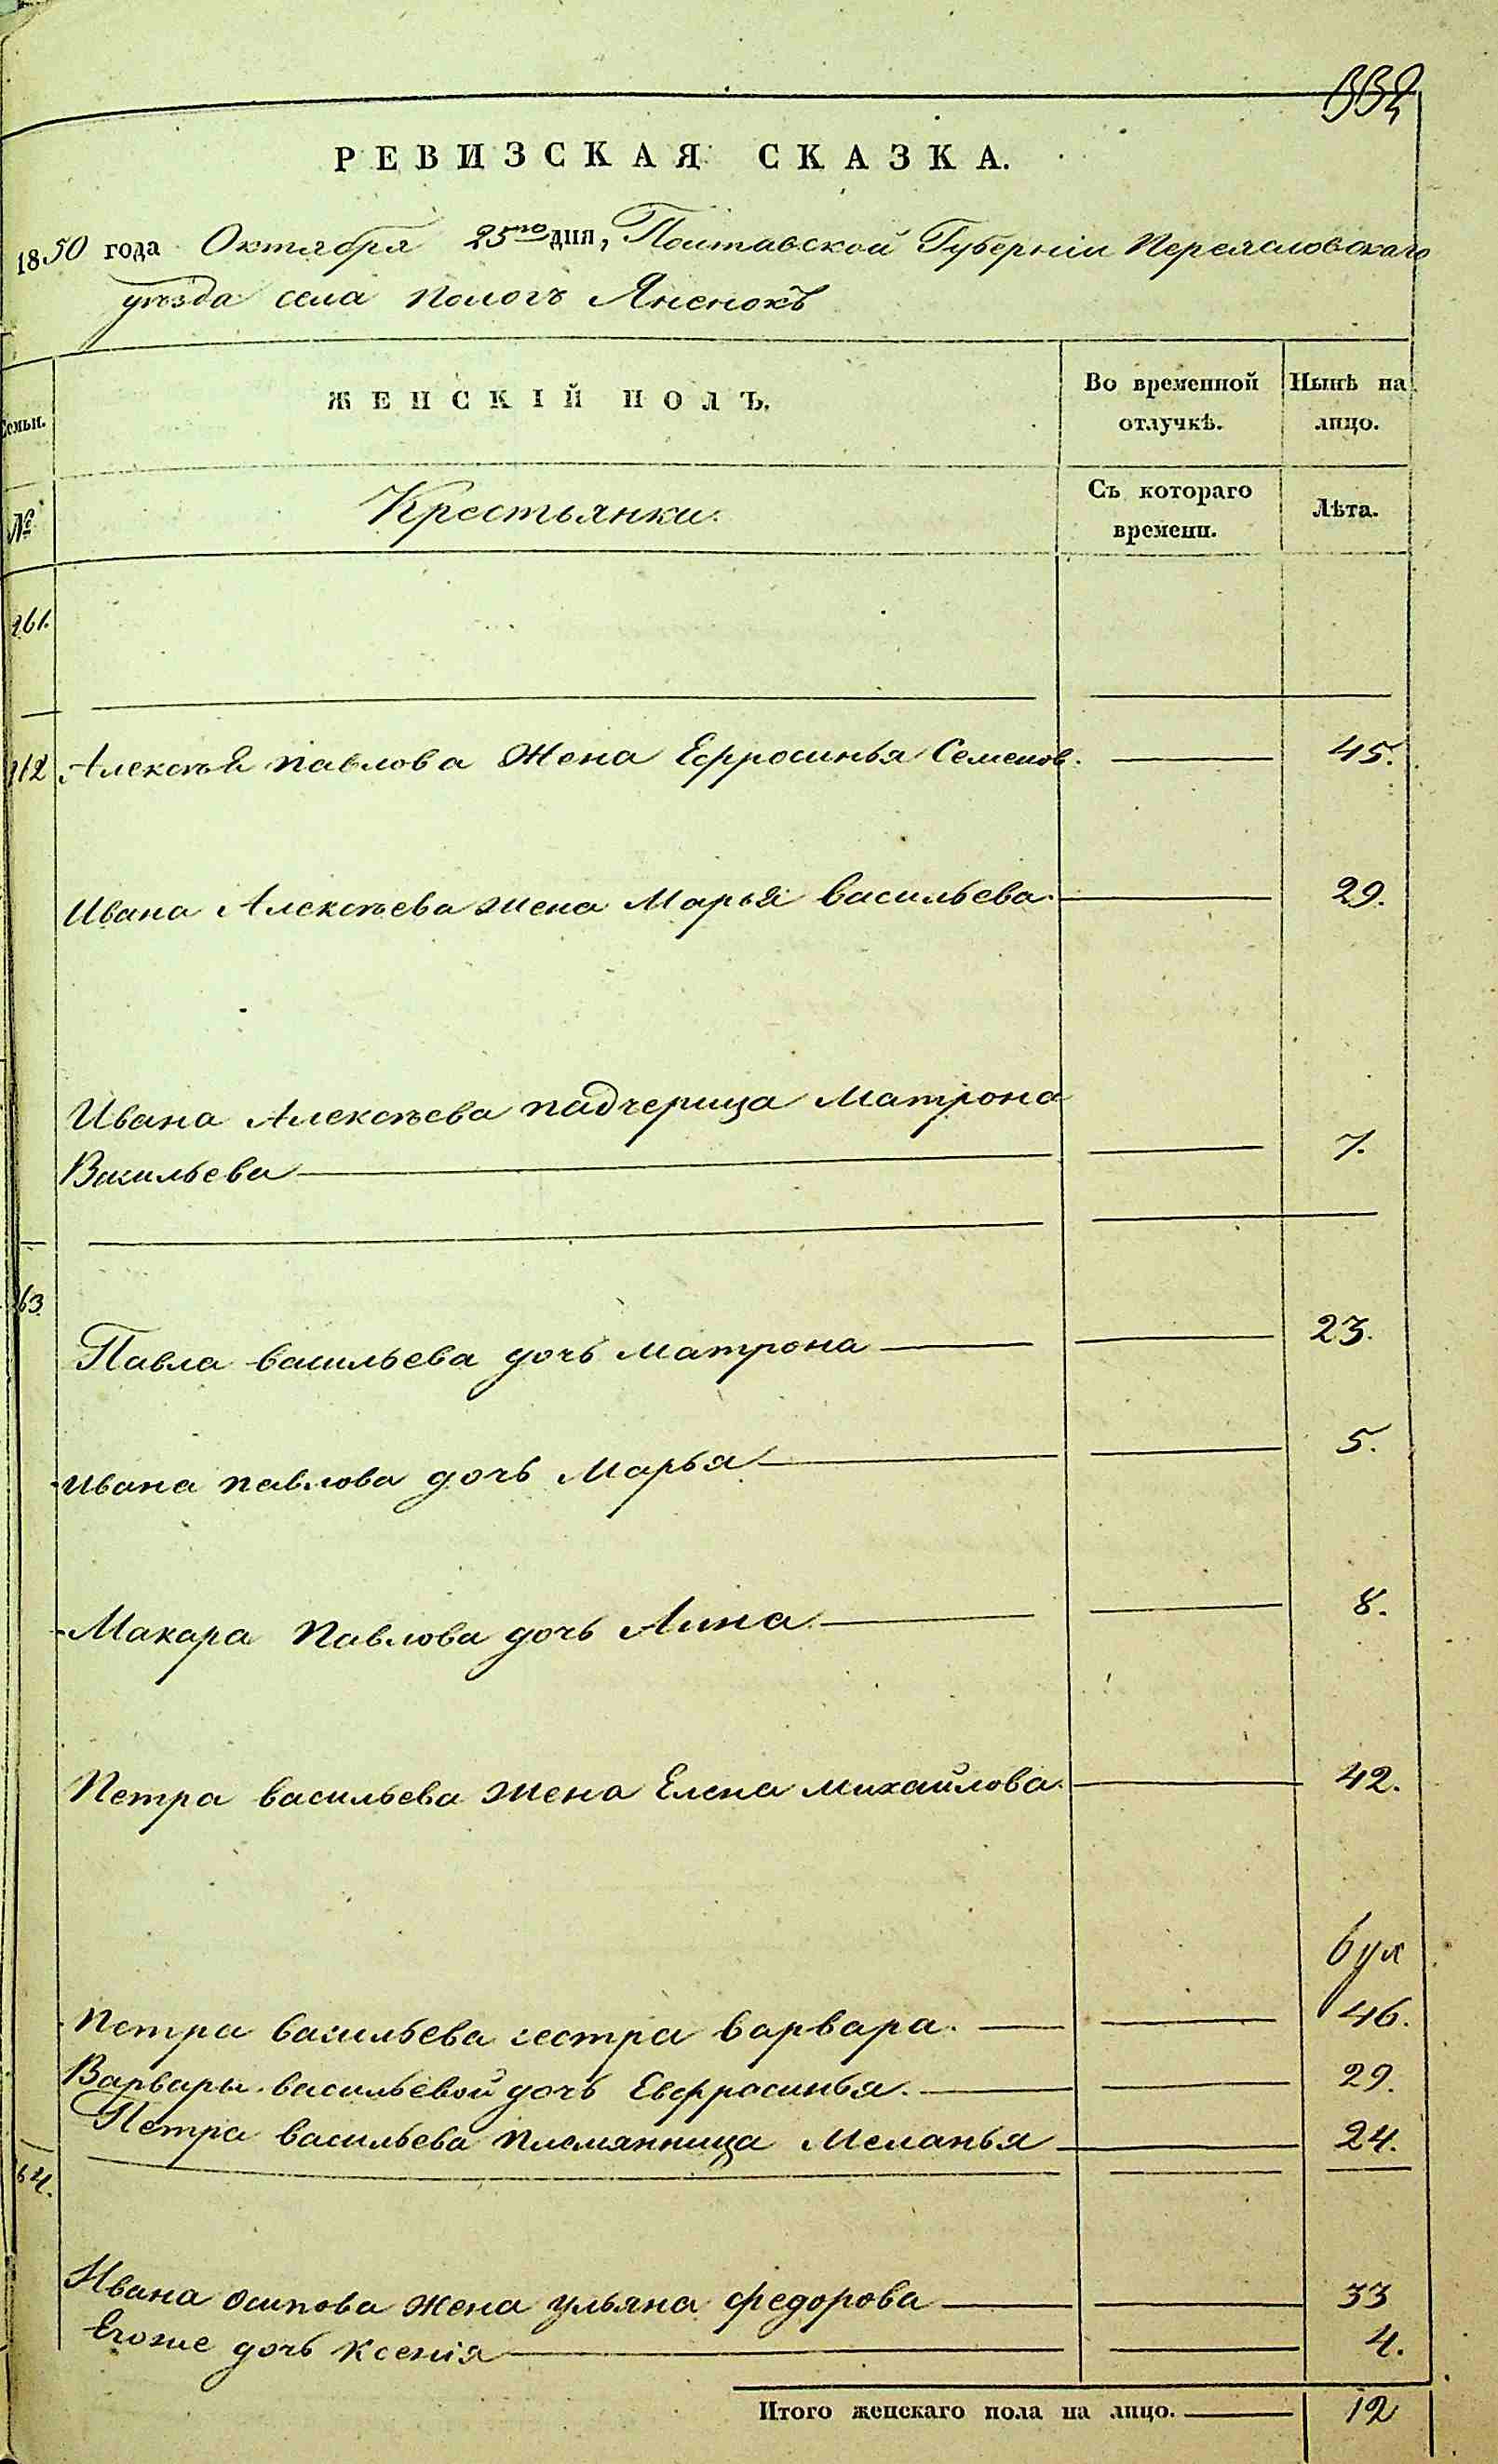 332
РЕВИЗСКАЯ СКАЗКА.
1850 года Октября 25го дня, Полтавской Губерніи Переяславскаго
уѣзда села Пологъ Яненокъ
Семьи.
ЖЕНСКІЙ ПОЛЪ.
Во временной отлучкѣ.
Нынѣ на лицо.
№
Крестьянки.
Съ котораго времени.
Лѣта.
261.
262 Алексѣя Павлова Жена Ефросинья Семенов. 45.
Ивана Алексѣева жена Марья Васильева. 29.
Ивана Алексѣева падчерица Матрона
Васильева 7.
263
Павла Васильева дочь Матрона 23.
Ивана Павлова дочь Марья 5.
Макара Павлова дочь Анна 8.
Петра Васильева жена Елена Михайлова. 42.
Петра Васильева сестра Варвара. 46.
Варвары Васильевой дочь Евфросинья. 29.
Петра Васильева племянница Меланья 24.
64.
Ивана Осипова жена Ульяна Федорова 33
Егоже дочь Ксенія 4.
Итого женскаго пола на лицо. 12